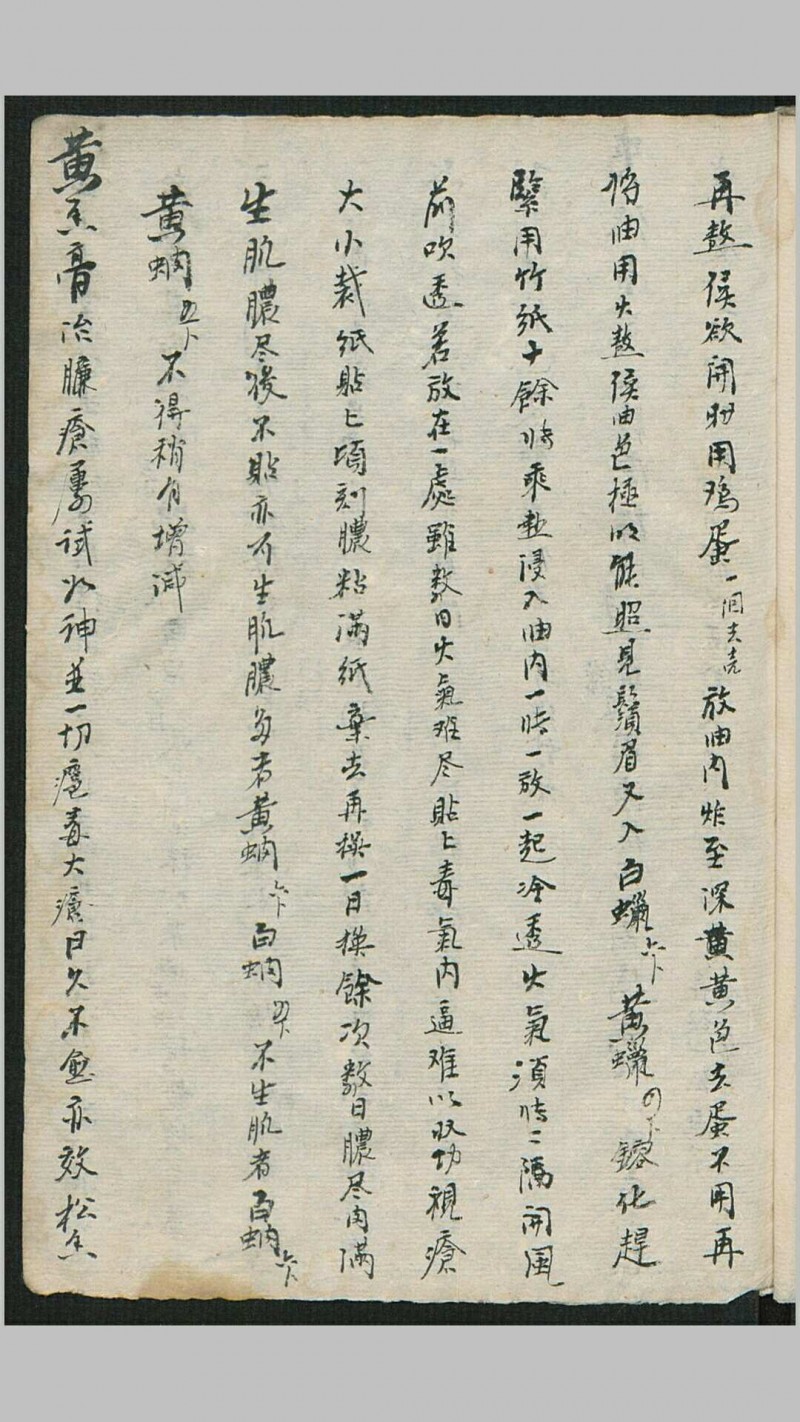 再熬候欲開時用鸡蛋一個去壳放油內炸至深黄黄色去蛋不用再
將油用火熬候油色極明能照見鬚眉又入白蠟六下黄蠟四下鎔化趕
緊用竹紙十餘张乘熱浸入油內一张一放一起冷透火氣須张二隔開風
前吹透若放在一處雖数日火氣难尽貼上毒氣內逼难以收功視瘡
大小裁紙貼上頃刻膿粘滿紙棄去再換一日換餘次数日膿尽肉滿
生肌膿尽後不貼亦可生肌膿多者黄蜡六下白蜡四下不生肌者白蜡六下
黄蜡四下不得稍有增减
黄香膏治臁瘡屡試如神並一切瘡毒大瘡日久不愈亦效松香